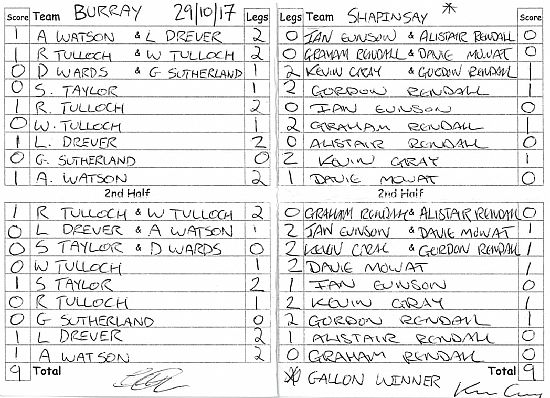 Score Team BURRAY 29/10/17 Legs Legs Team SHAPINSAY * Score
1 A WATSON & L DREVER 2 0 IAN EUNSON & ALISTAIR RENDALL 0
1 R TULLOCH & W TULLOCH 2 0 GRAHAM RENDALL & DAVIE MOWAT 0
0 D WARDS & G SUTHERLAND 1 2 KEVIN GRAY & GORDON RENDALL 1
0 S. TAYLOR 1 2 GORDON RENDALL 1
1 R. TULLOCH 2 0 IAN EUNSON 0
0 W. TULLOCH 1 2 GRAHAM RENDALL 1
1 L. DREVER 2 0 ALISTAIR RENDALL 0
0 G. SUTHERLAND 0 2 KEVIN GRAY 1
1 A. WATSON 2 1 DAVIE MOWAT 0
2nd Half 2nd Half
1 R TULLOCH & W TULLOCH 2 0 GRAHAM RENDALL & ALISTAIR RENDALL 0
0 L DREVER & A WATSON 1 2 IAN EUNSON & DAVIE MOWAT 1
0 S TAYLOR & D WARDS 0 2 KEVIN GRAY & GORDON RENDALL 1
0 W TULLOCH 1 2 DAVIE MOWAT 1
1 S TAYLOR 2 1 IAN EUNSON 0
0 R TULLOCH 1 2 KEVIN GRAY 1
0 G SUTHERLAND 0 2 GORDON RENDALL 1
1 L DREVER 2 1 ALISTAIR RENDALL 0
1 A WATSON 2 0 GRAHAM RENDALL 0
9 Total * GALLON WINNER Total 9